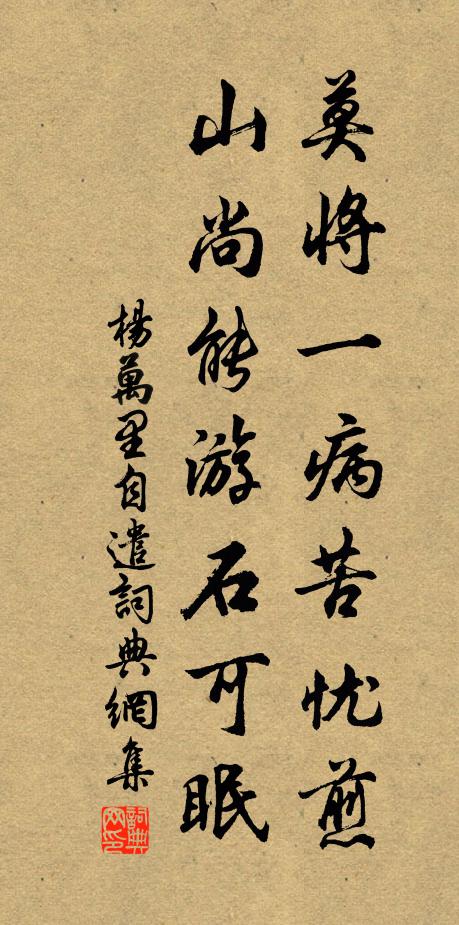 莫將一病苦忧煎
山尚能游石可眠
楊萬里自遣詞典網集
詞典網印